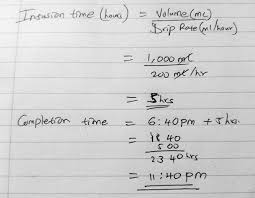 Infusion time (hours) = Volume (mL)
Drip Rate (ml/hour)
= 1,000 ml
200 ml/hr
= 5hrs
Completion time = 6:40pm + 5hrs
= 18 40
5 00
23 40hrs
= 11:40pm